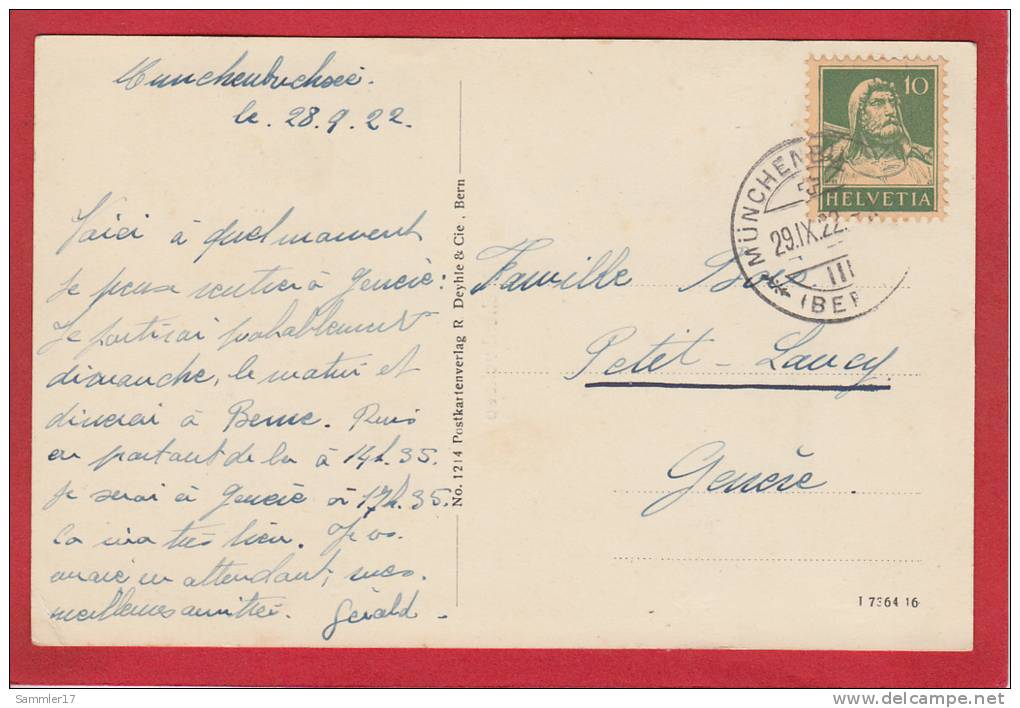 Munchenbuchsee.
le. 28.9.22.
Voici à quel moment
je peux rentrer à Genève :
Je partirai probablement
dimanche, le matin et
dinerai à Berne. Puis
en partant de là à 14h.35.
je serai à Genève à 17h.35.
ça ira très bien. Je vs.
envoie en attendant, mes
meilleures amitiés. Gérald.
No. 1214 Postkartenverlag R Deyhle & Cie., Bern
10
HELVETIA
MÜNCHENB
29.IX.22.
III
(BER
Famille
Petit-Lancy
Genève.
I 7364 16
Sammler17
www.delcampe.net